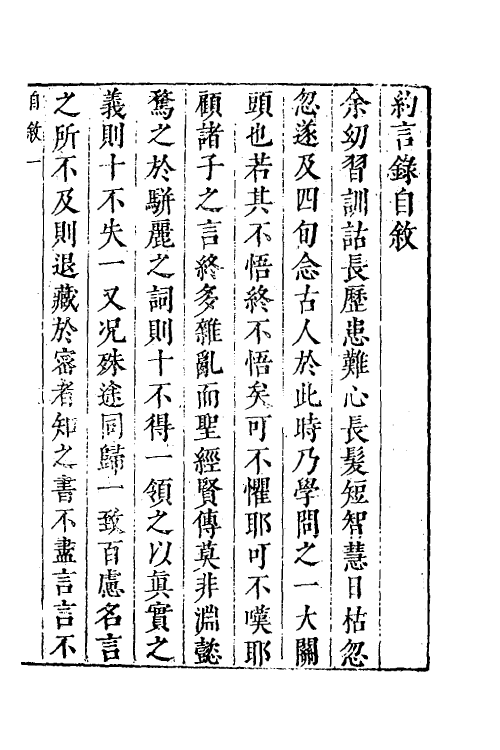 約言錄自敘
余幼習訓詁長歷患難心長髮短智慧日枯忽
忽遂及四旬念古人於此時乃學問之一大關
頭也若其不悟終不悟矣可不懼耶可不嘆耶
顧諸子之言終多雜亂而聖經賢傳莫非淵懿
騖之於駢麗之詞則十不得一領之以眞實之
義則十不失一又况殊途同歸一致百慮名言
之所不及則退藏於宻者知之書不盡言言不
自敘一